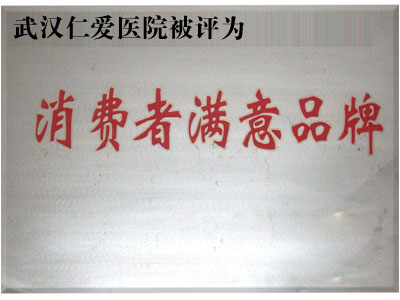 武汉仁爱医院被评为
消费者满意品牌